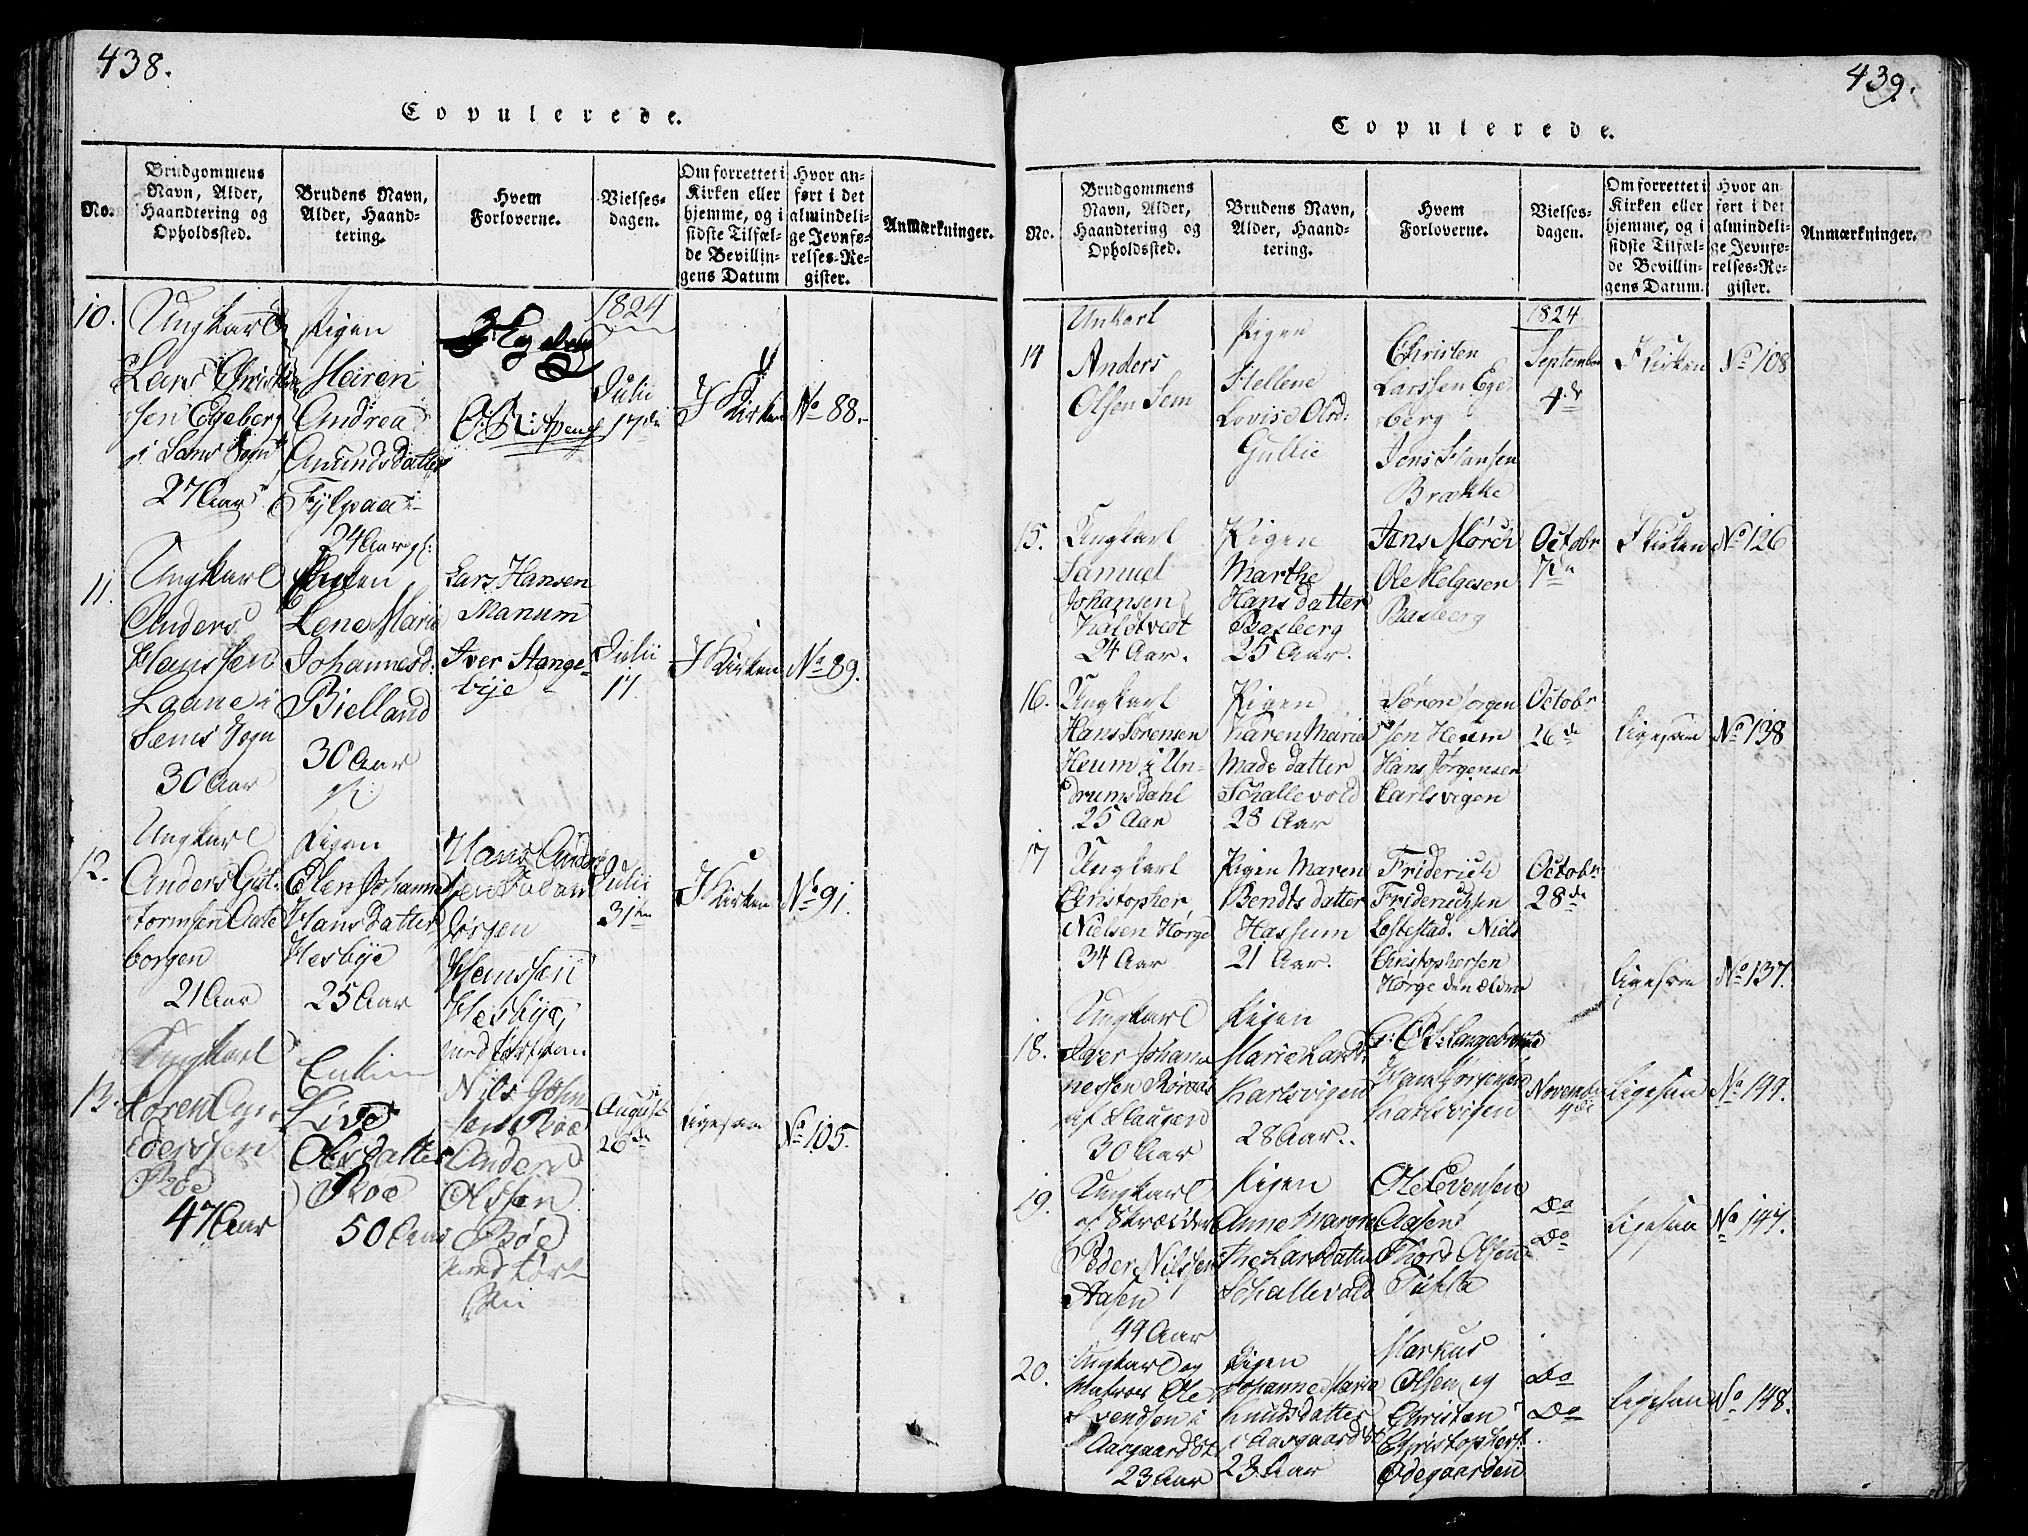 438.
Copulerede.
No.
Brudgommens
Navn, Alder,
Haandtering og
Opholdssted.
Brudens Navn,
Alder, Haand-
tering.
Hvem
Forloverne.
Vielses-
dagen.
Om forrettet i
Kirken eller
hjemme, og i
sidste Tilfæl-
de Bevillin-
gens Datum
Hvor an-
ført i det
almindeli-
ge Jevnfø-
relses-Re-
gister.
Anmærkninger.
1824
10.
Ungkarl
Lars Christian
sen Egeberg
i Sems Sogn
27 Aar
Pigen
Maren
Andrea
Amundsdatter
Fylpaa
24 Aar
Julii
17de
I Kirken
No 88.
11.
Ungkarl
Anders
Hanssen
Laane i
Sems Sogn
30 Aar
Pigen
Lene Marie
Johannesd.
Bielland
30 Aar
Lars Hansen
Manum
Iver Stange-
bye
Julii
17.
I Kirken
No 89.
12.
Ungkarl
Anders Gut-
tormsen Aare
borgen
21 Aar
Pigen
Elen Johanne
Hansdatter
Hesbye
25 Aar
Hans Anders
Jørgen
Hanssen
Hesbye,
Julii
31te
I Kirken
No 91.
13.
Ungkarl
Søren
Pedersen
Røe
47 Aar
Enken
Live
Olsdatter
Røe
50 Aar
Nils John
sen Røe
Anders
Olssen
Røe
August
26de
Ligesaa
No 105.
439.
Copulerede.
No.
Brudgommens
Navn, Alder,
Haandtering og
Opholdssted.
Brudens Navn,
Alder, Haand-
tering.
Hvem
Forloverne.
Vielses-
dagen.
Om forrettet i
Kirken eller
hjemme, og i
sidste Tilfæl-
de Bevillin-
gens Datum.
Hvor an
ført i det
almindeli-
ge Jevnfø-
relses-Re-
gister.
Anmærkninger.
1824
14
Unkarl
Anders
Olsen Sem
Pigen
Hellene
Lovise Olsd:
Gullie
Christen
Larssen Ege
berg
Jens Hansen
Brække
September
4de
I Kirken
No 108
15.
Ungkarl
Samuel
Johansen
Kaldtvedt
24 Aar.
Pigen
Marthe
Hansdatter
Basberg
25 Aar.
Jens Mørch
Ole Helgesen
Basberg
Octobr
7de
I Kirken
No 126
16.
Ungkarl
Hans Sørensen
Heum i Un-
drumsdahl
25 Aar
Pigen
Karen Marie
Madsdatter
Schallevold
28 Aar
Søren Jørgen
sen Heum
Hans Jørgensen
Carlsvigen
Octobr
26de
Ligesaa
No 138
17
Ungkarl
Christopher
Nielsen Hørge
34 Aar
Pigen Maren
Bendtsdatter
Hassum
21 Aar.
Friderich
Friderichsen
Løstestad. Niels
Christophersen
Hørge den ældre
Octobr
28de
Ligesaa
No 137.
18.
Ungkarl
Iver Johan
nessen Røraas
af Slaugen
30 Aar
Pigen
Marie Larsd.
Karlsvigen
28 Aar.
Hans Jørgensen
Karlsvigen
November
4de
Ligesaa
No 144.
19.
Ungkarl
og Skræder
Peder Nilssen
Aasen
44 Aar
Pigen
Anne Margre
the Larsdatter
Schallevold
Ole Evensen
Aasen
Thord Olsen
Tufte
Do
Do
Ligesaa
No 147.
20.
Ungkarl og
Matros Ole
Svendsen i
Aasgaardst
23 Aar
Pigen
Johanne Marie
Knudsdatter
i Aasgaardst
23 Aar
Markus
Olsen og
Christen
Christophers.
Ødegaarden
Do
Do
Ligesaa
No 148.